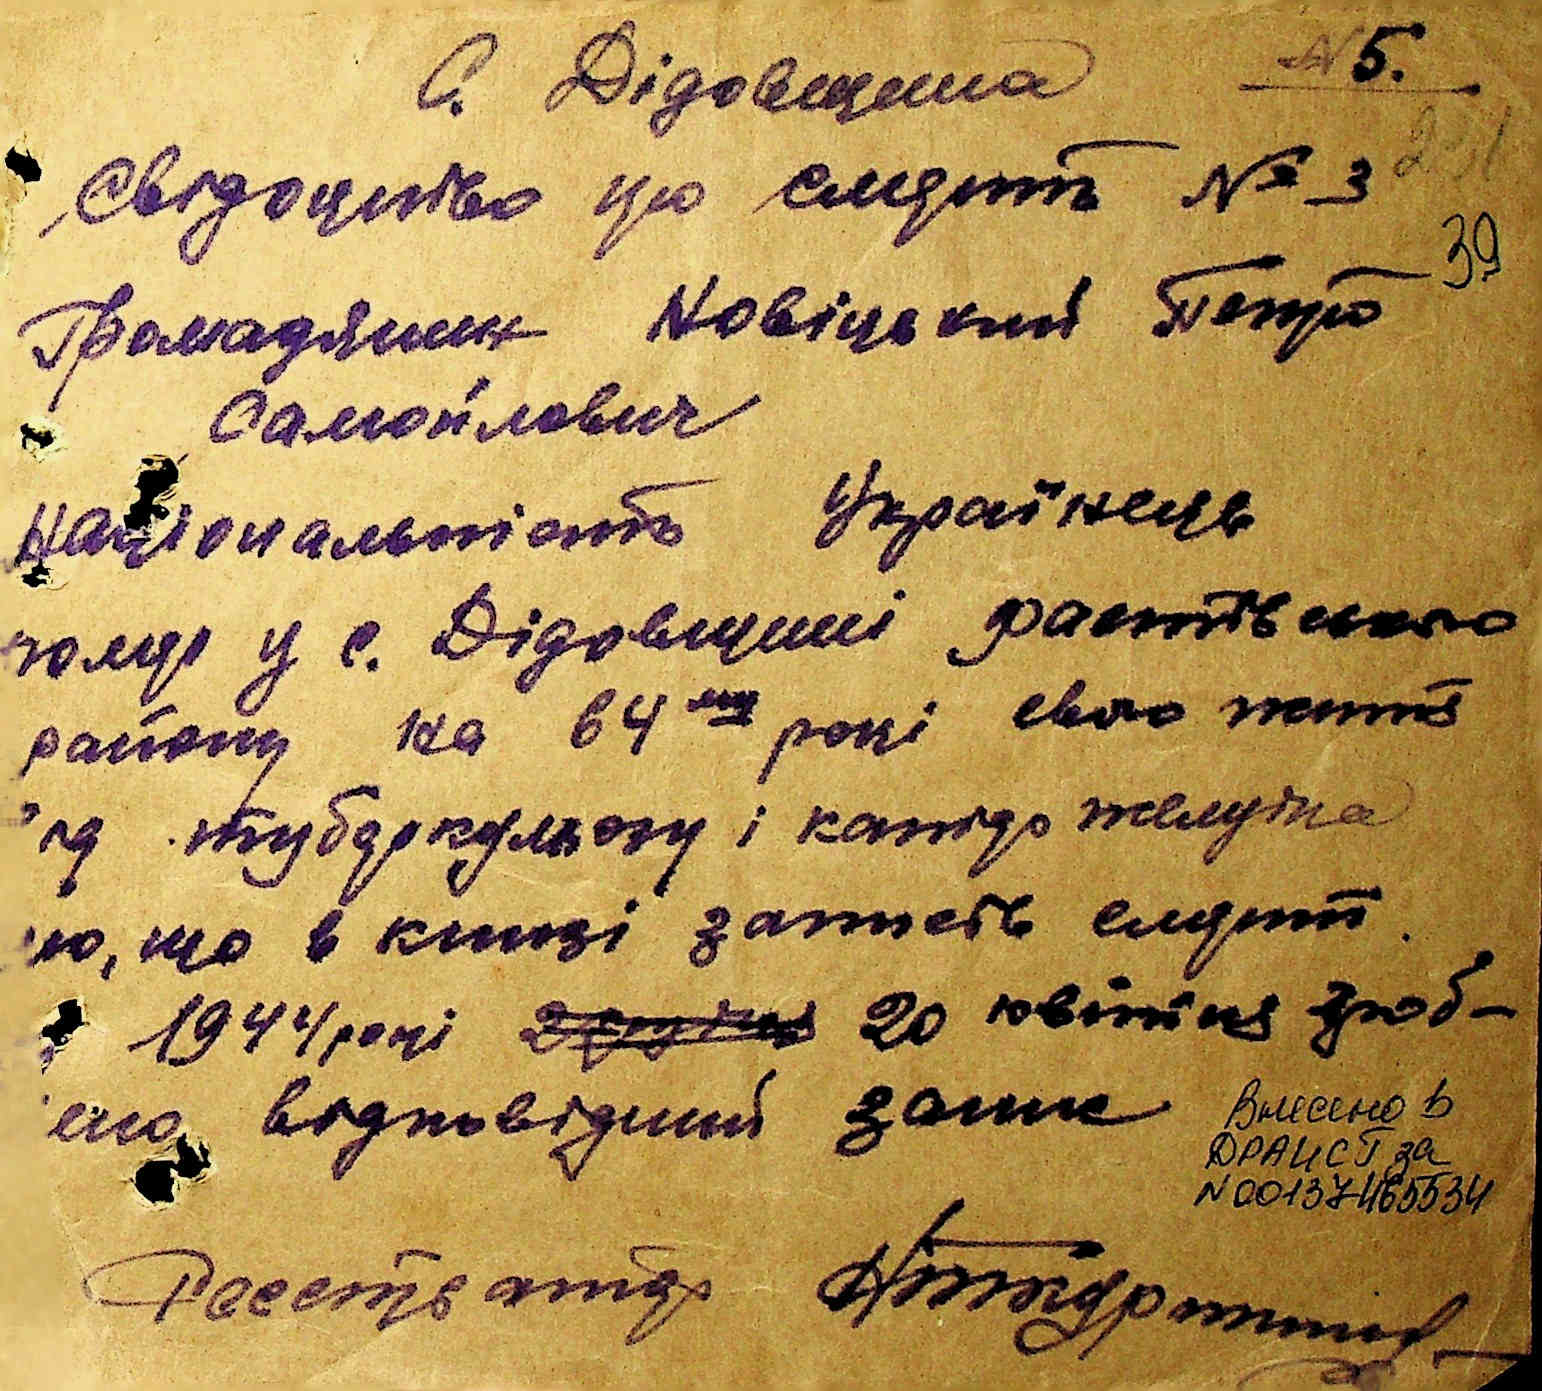 С. Дідовщина N 5.
Свідоцтво про смерть № 3
39
Громадянин Новіцький Петро
Самойлович
Національність Українець
помер у с. Дідовщині Фастівського
району на 64 му році свого життя
від туберкульозу і желудка
що в книзі записів смерті
1944 році 20 квітня зроб-
лено відповідний запис
Внесено в
ДРАЦСГ за
N 00137465534
Реєстратор